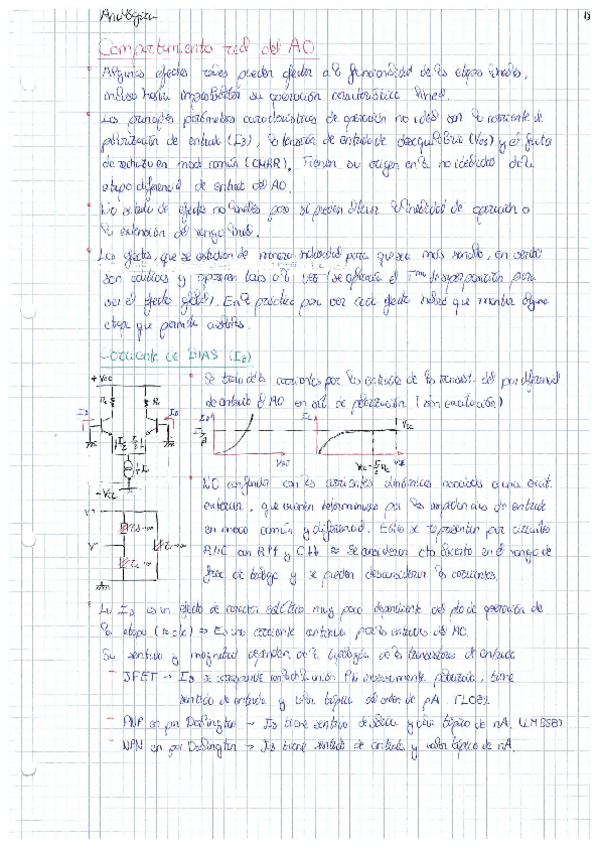 Analógica
Comportamiento real del AO
Algunos efectos reales pueden afectar a la funcionalidad de las etapas lineales,
incluso hasta imposibilitar su operación característica lineal.
Los principales parámetros característicos de operación no ideal son la corriente de
polarización de entrada (IB), la tensión de entrada de desequilibrio (Vos) y el factor
de rechazo en modo común (CMRR). Tienen su origen en la no idealidad de la
etapa diferencial de entrada del AO.
No se trata de efectos no lineales pero sí pueden alterar la linealidad de operación o
la extensión del rango lineal.
Los efectos, que se estudian de manera individual para que sea más sencillo, en verdad
son aditivos y aparecen todos a la vez (se aplicaría el Tma de superposición para
ver el efecto global). En la práctica por ver cada efecto habrá que montar alguna
etapa que permita aislarlos.
Corriente de BIAS (IB)
+Vcc
Rc Rc
IB IB
-Vcc
Se trata de la corriente por las entradas de los transist. del par diferencial
de entrada del AO en sit. de polarización (sin excitación)
IB
IC
NO confundir con las corrientes dinámicas asociadas a una excit.
exterior, que vienen determinadas por las impedancias de entrada
en modo común y diferencial. Estas se representan por circuitos
se pueden desconsiderar las corrientes.
La IB es un efecto de carácter estático muy poco dependiente del pto de operación de
la etapa ⇒ Es una corriente continua por las entradas del AO.
Su sentido y magnitud dependen de la tipología de los transistores de entrada
- JFET → IB se corresponde con la unión PN inversamente polarizada, tiene
sentido de entrada y valor típico del orden de pA.
- PNP en par Darlington → IB tiene sentido de salida y valor típico de nA.
- NPN en par Darlington → IB tiene sentido de entrada y valor típico de nA.